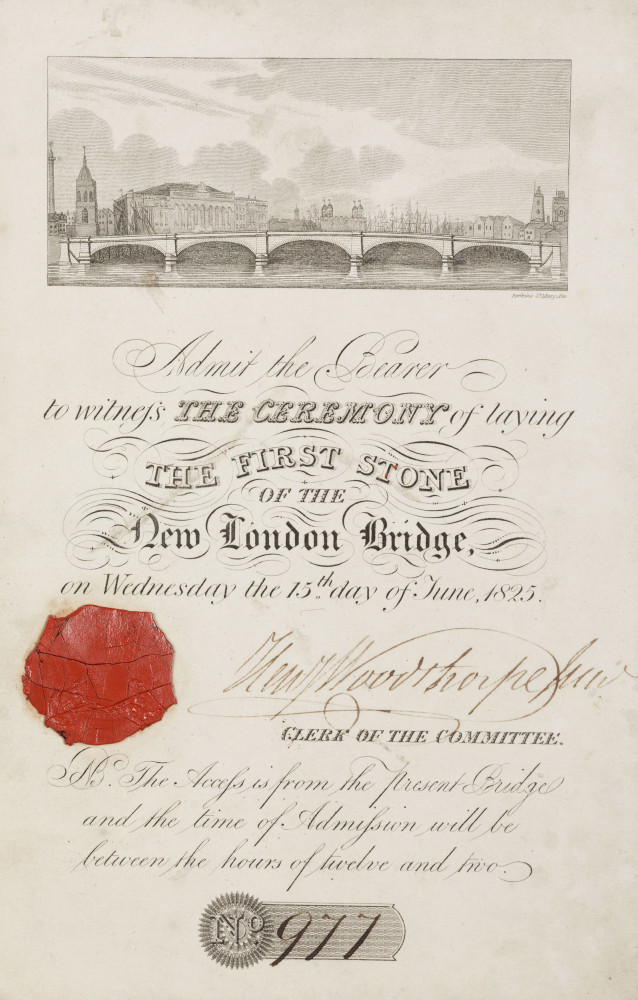 Admit the Bearer
to witneſs THE CEREMONY of laying
THE FIRST STONE
OF THE
New London Bridge,
on Wednesday the 15th day of June, 1825.
Henry Woodthorpe Junr
CLERK OF THE COMMITTEE.
NB. The Acceſs is from the present Bridge
and the time of Admission will be
between the hours of twelve and two.
No 977